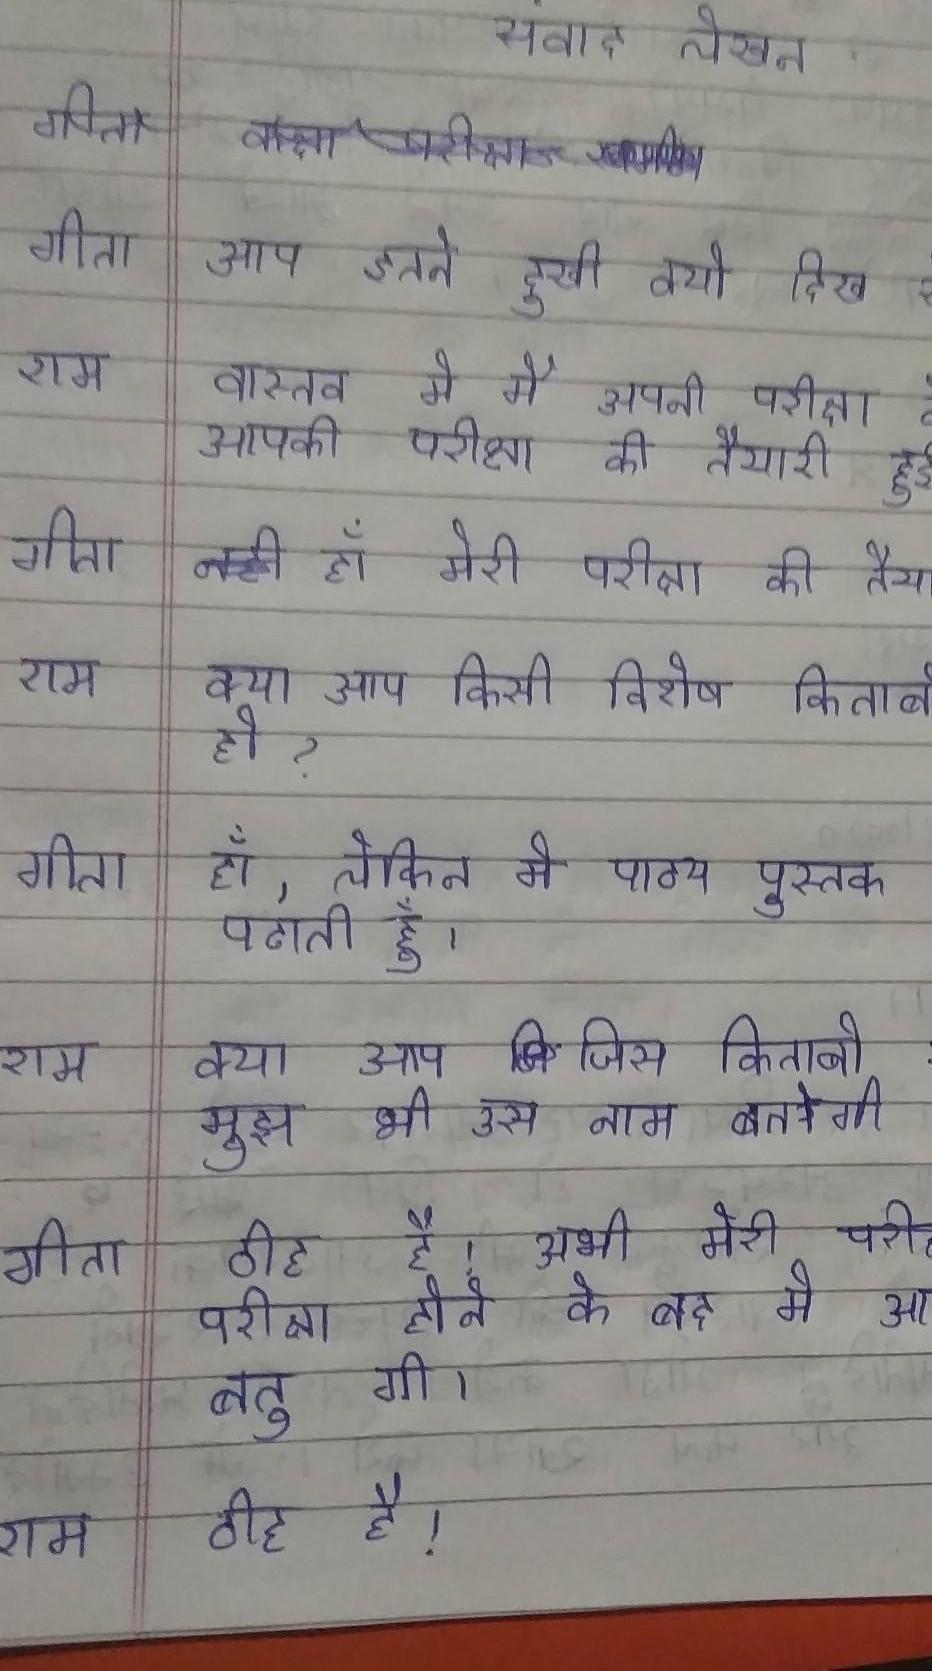 संवाद लेखन
गीता
गीता आप इतने दुखी क्यो दिख
राम वास्तव मे मैं अपनी परीक्षा
आपकी परीक्षा की तैयारी हुई
गीता नही हाँ मेरी परीक्षा की तैया
राम क्या आप किसी विशेष किताबो
हो ?
गीता हाँ, लेकिन मे पाठ्य पुस्तक
पढाती हूँ।
राम क्या आप जिस किताबो
मुझ भी उस नाम बतऐगी
गीता ठीह है। अभी मेरी परीक्ष
परीक्षा होने के बद मे आ
बतु गी।
राम ठीह है!